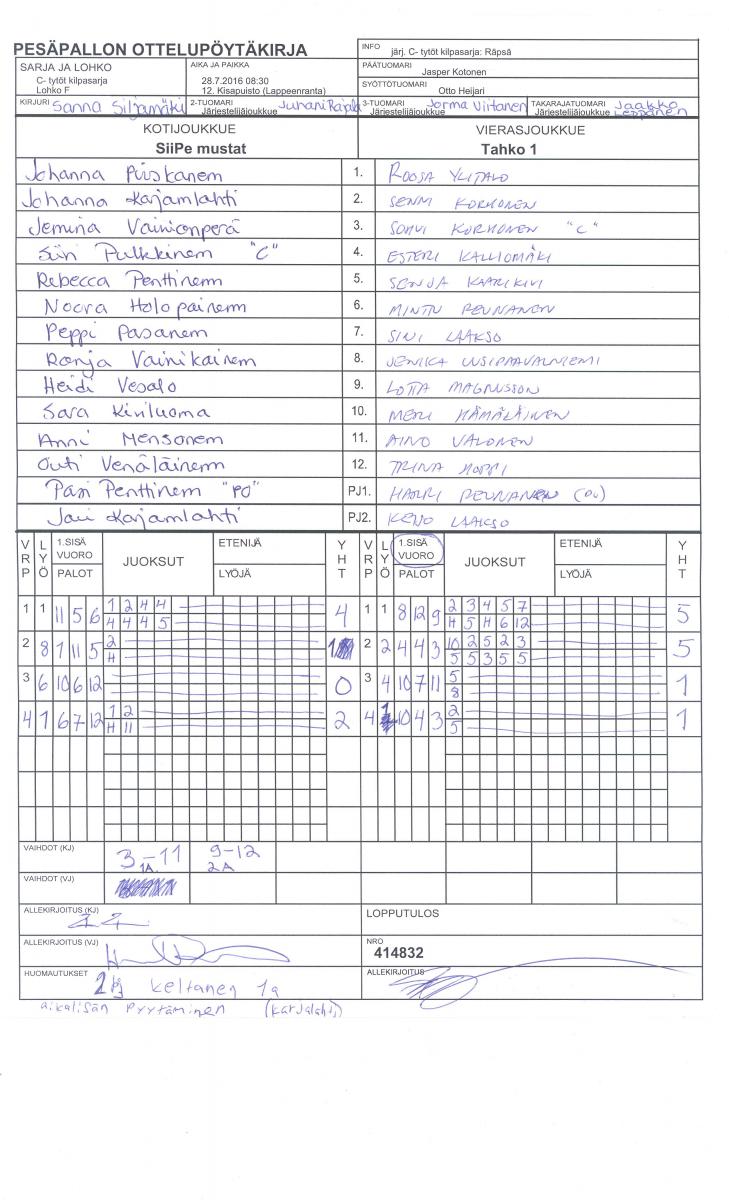 PESÄPALLON OTTELUPÖYTÄKIRJA
INFO järj. C- tytöt kilpasarja: Räpsä
SARJA JA LOHKO
C- tytöt kilpasarja
Lohko F
AIKA JA PAIKKA
28.7.2016 08:30
12. Kisapuisto (Lappeenranta)
PÄÄTUOMARI
Jasper Kotonen
SYÖTTÖTUOMARI
Otto Heijari
KIRJURI Sanna Siljamäki
2-TUOMARI Juhani Rajala
Järjestelijäjoukkue
3-TUOMARI Jorma Viitanen
Järjestelijäjoukkue
TAKARAJATUOMARI Jaakko Leppänen
KOTIJOUKKUE
SiiPe mustat
VIERASJOUKKUE
Tahko 1
Johanna Puskanem 1. ROOSA YLITALO
Johanna Karjamlahti 2. SENNI KORHONEN
Jemina Vainionperä 3. SOHVI KORHONEN "C"
Siiri Pulkkinem "C" 4. ESTERI KALLIOMÄKI
Rebecca Penttinem 5. SENJA KAARIKIVI
Noora Holopainem 6. MINTU PEUNANEN
Peppi Pasanem 7. SINI LAAKSO
Ronja Vainikainem 8. JENIKA UUSIPAAVALNIEMI
Heidi Vesalo 9. LOTTA MAGNUSSON
Sara Kiviluoma 10. MERI HÄMÄLÄINEN
Anni Mensonem 11. AINO VALONEN
Outi Venäläinem 12. TRINA HOPPI
Pasi Penttinem "PO" PJ1. HARRI PEUNANEN (PU)
Jari Karjamlahti PJ2. KEIJO LAAKSO
VRP LYÖ 1.SISÄ VUORO PALOT JUOKSUT ETENIJÄ LYÖJÄ YHT VRP LYÖ 1.SISÄ VUORO PALOT JUOKSUT ETENIJÄ LYÖJÄ YHT
1 1 11 5 6 1 2 4 4 4 1 1 8 12 9 2 3 4 5 7 5
4 4 4 5 H 5 H 6 12
2 8 7 11 5 2 1 2 2 4 4 3 10 2 5 2 3 5
H 5 5 3 5 5
3 6 10 6 12 0 3 4 10 7 11 5 1
8
4 1 6 7 12 1 2 2 4 10 4 3 2 1
H 11 5
VAIHDOT (KJ) 3-11 9-12
1A. 2A
VAIHDOT (VJ)
ALLEKIRJOITUS (KJ)
LOPPUTULOS
ALLEKIRJOITUS (VJ)
NRO
414832
HUOMAUTUKSET 2 pj keltanen 1a
ALLEKIRJOITUS
aikalisän pyytäminen (karjalahti)